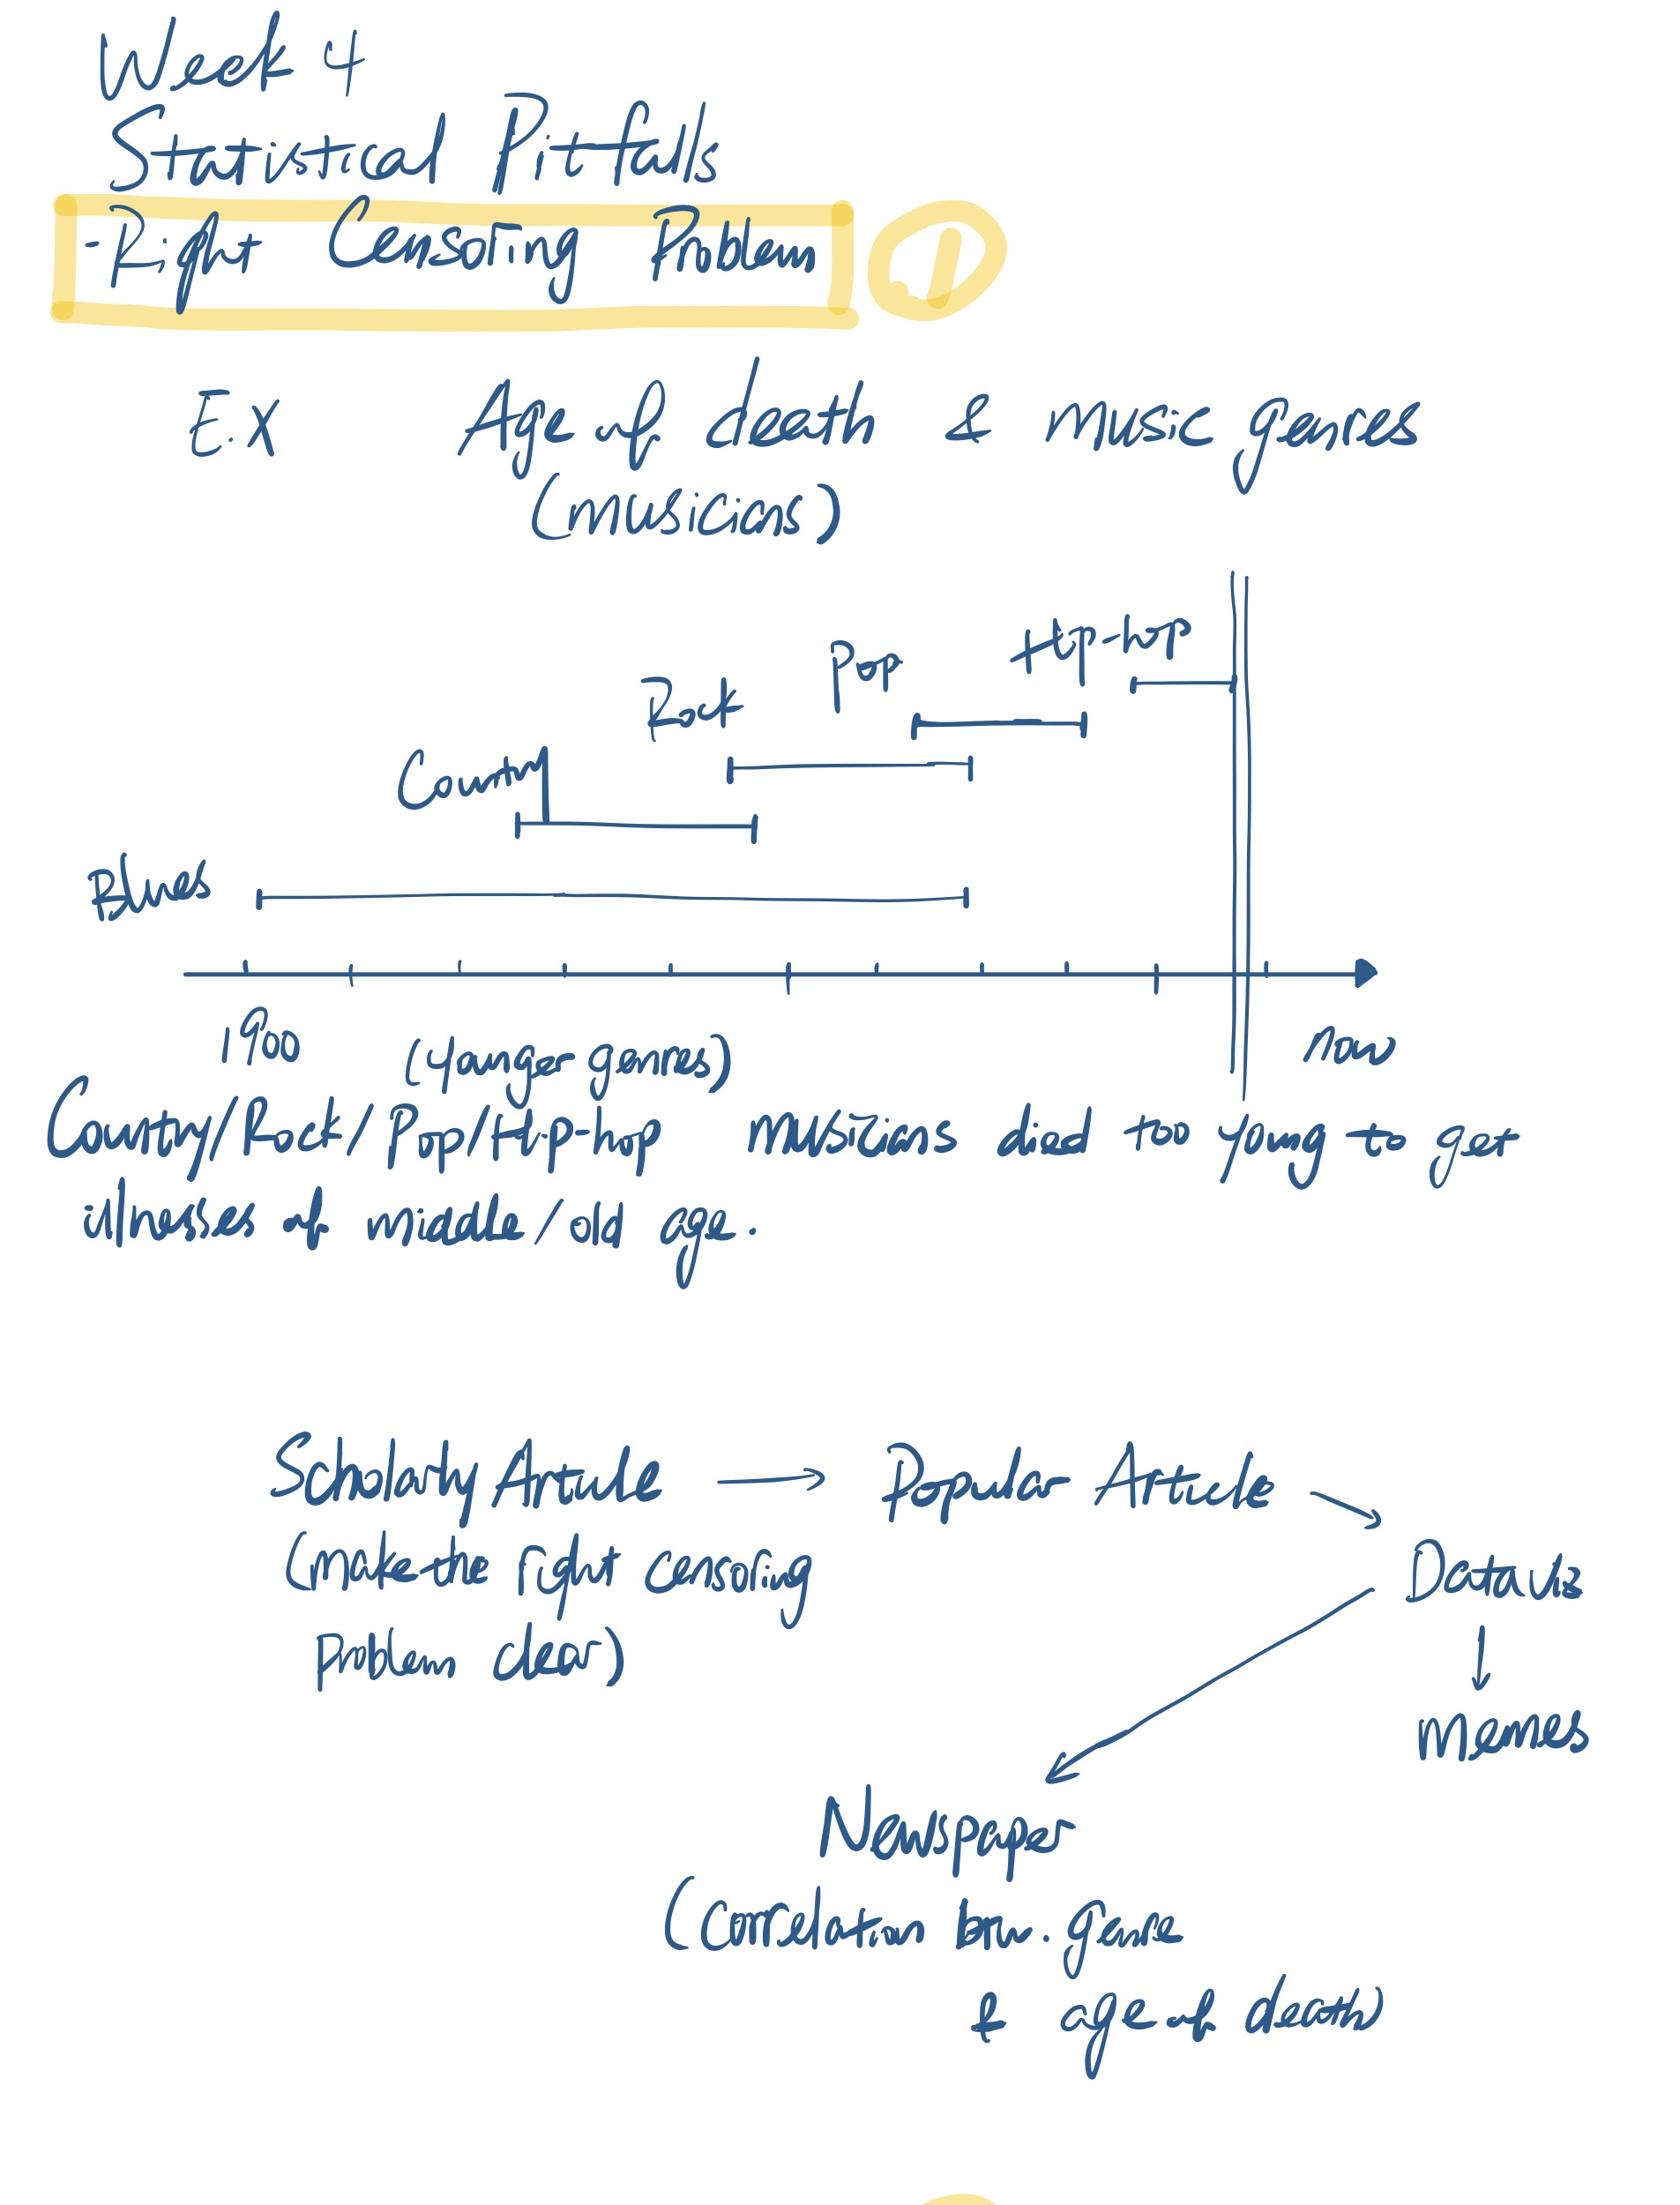 Week 4
Statistical Pitfalls
- Right Censoring Problem ①
EX Age of death & music genres
(musicians)
Hip-hop
Pop
Rock
Country
Blues
1900 (younger genres) now
Country/Rock/Pop/Hip-hop musicians died too young to get
illnesses of middle/old age.
Scholarly Article → Popular Article
(make the right censoring
problem clear)
Data vis
memes
Newspaper
(Correlation btw. genre
& age of death)